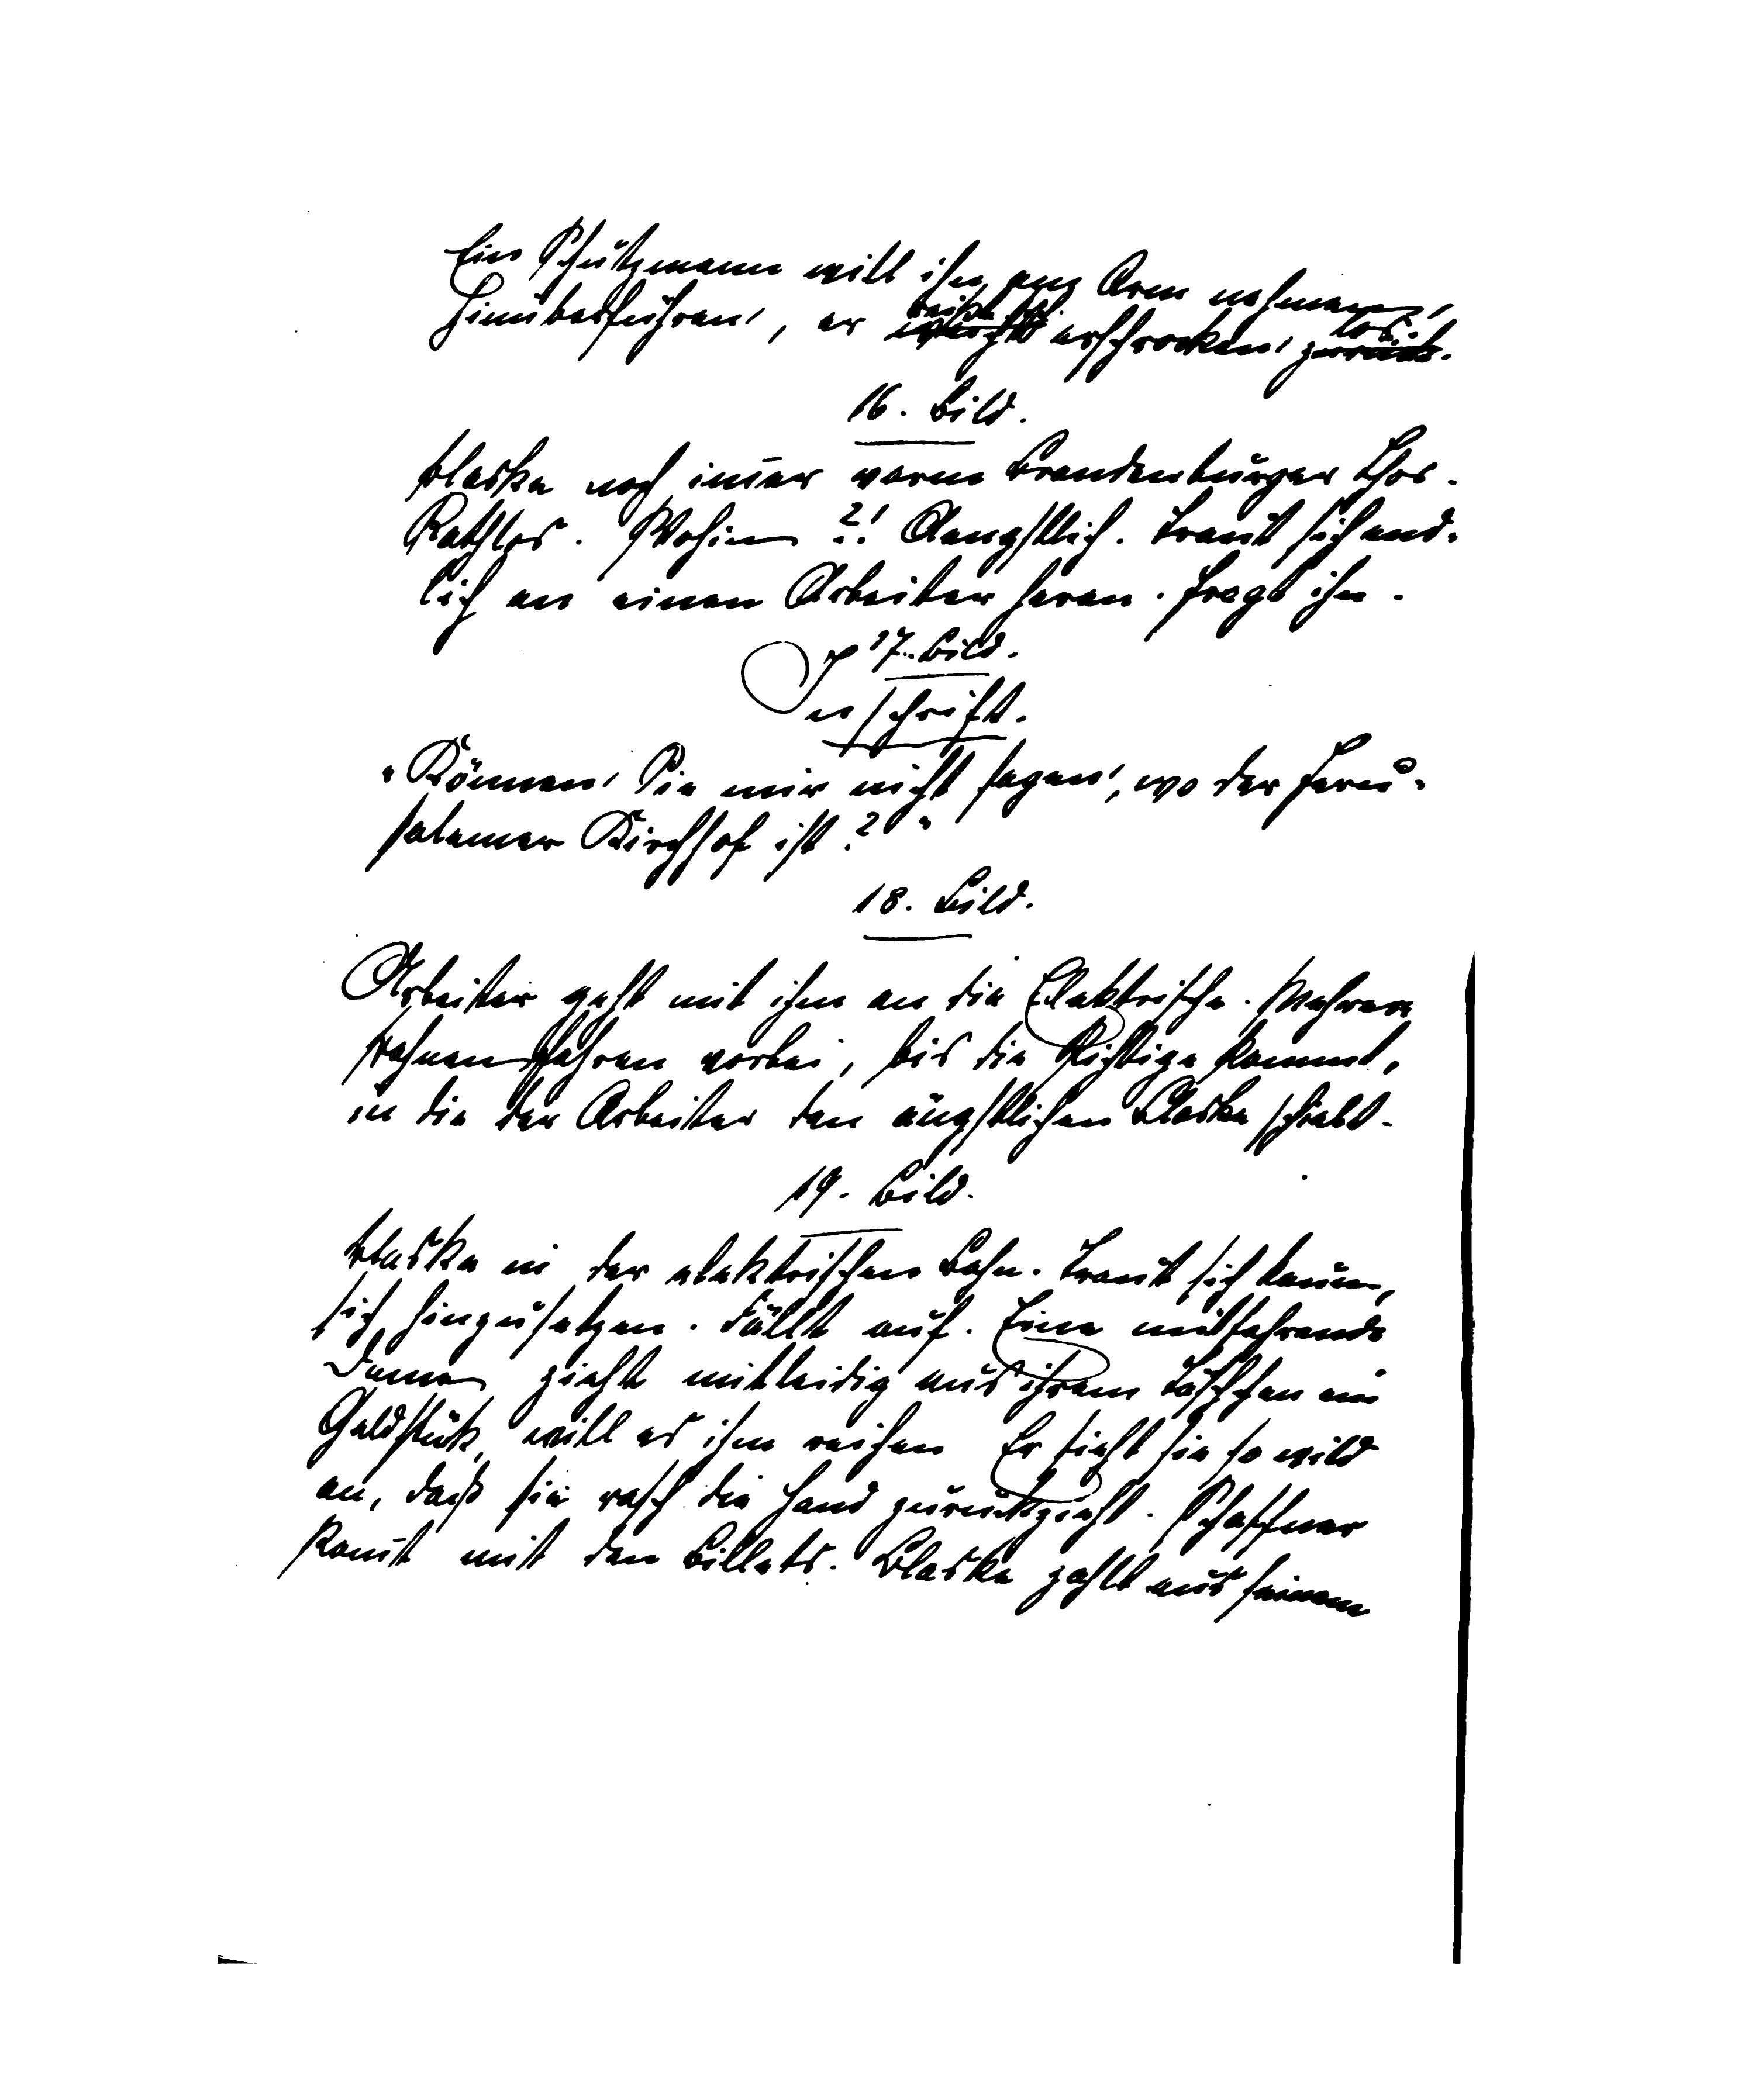 Ein Schutzmann will ihn am Arm nehmen,
hinüberführen, er reißt sich erschrocken los.
16. Bild.
Klaska noch im̄er vorm Brandenburger Thor.
Rathlos. Wohin ?! Aengstlich. Traut sich end-
lich an einen Arbeiter heran. Fragt ihn.
17. Bild.
Inschrift.
"Können Sie mir nicht sagen, wo der Jeru-
salemer Kirchhof ist?"
18. Bild.
Arbeiter geht mit ihm an die Elektrische. Mehrere
Bahnen fahren vorbei, bis die Richtige kommt,
in die der Arbeiter den ängstlichen Klaska schiebt.
19. Bild.
Klaska in der elektrischen Bahn. Traut sich kaum,
sich hinzusetzen. Fällt auf. Eine mitfahrende
Dame zieht mitleidig aus ihrem Täschchen ein
Geldstück, will es ihm reichen Er sieht sie so wild
an, daß sie rasch die Hand zurückzieht. Schaffner
kom̄t mit den Billets. Klaska zahlt aus seinem